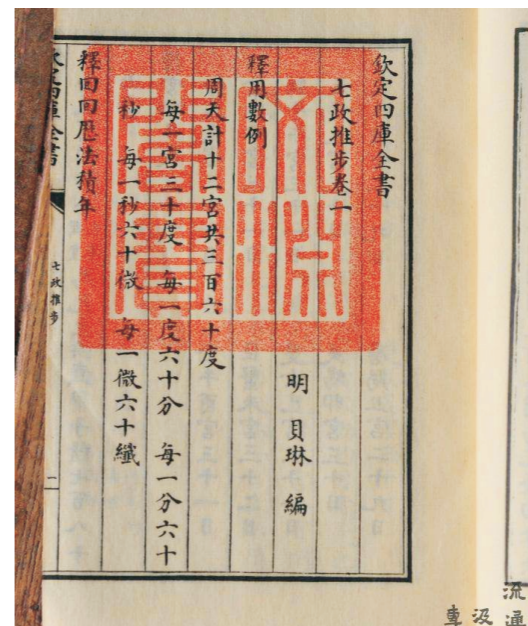 欽定四庫全書
七政推步卷一
明 貝琳 編
釋用數例
周天計十二宮共三百六十度
每一宮三十度 每一度六十分 每一分六十
秒 每一秒六十微 每一微六十纖
釋回回厯法積年
四庫全書
七政推步
文淵
閣寶
流通
汲
專